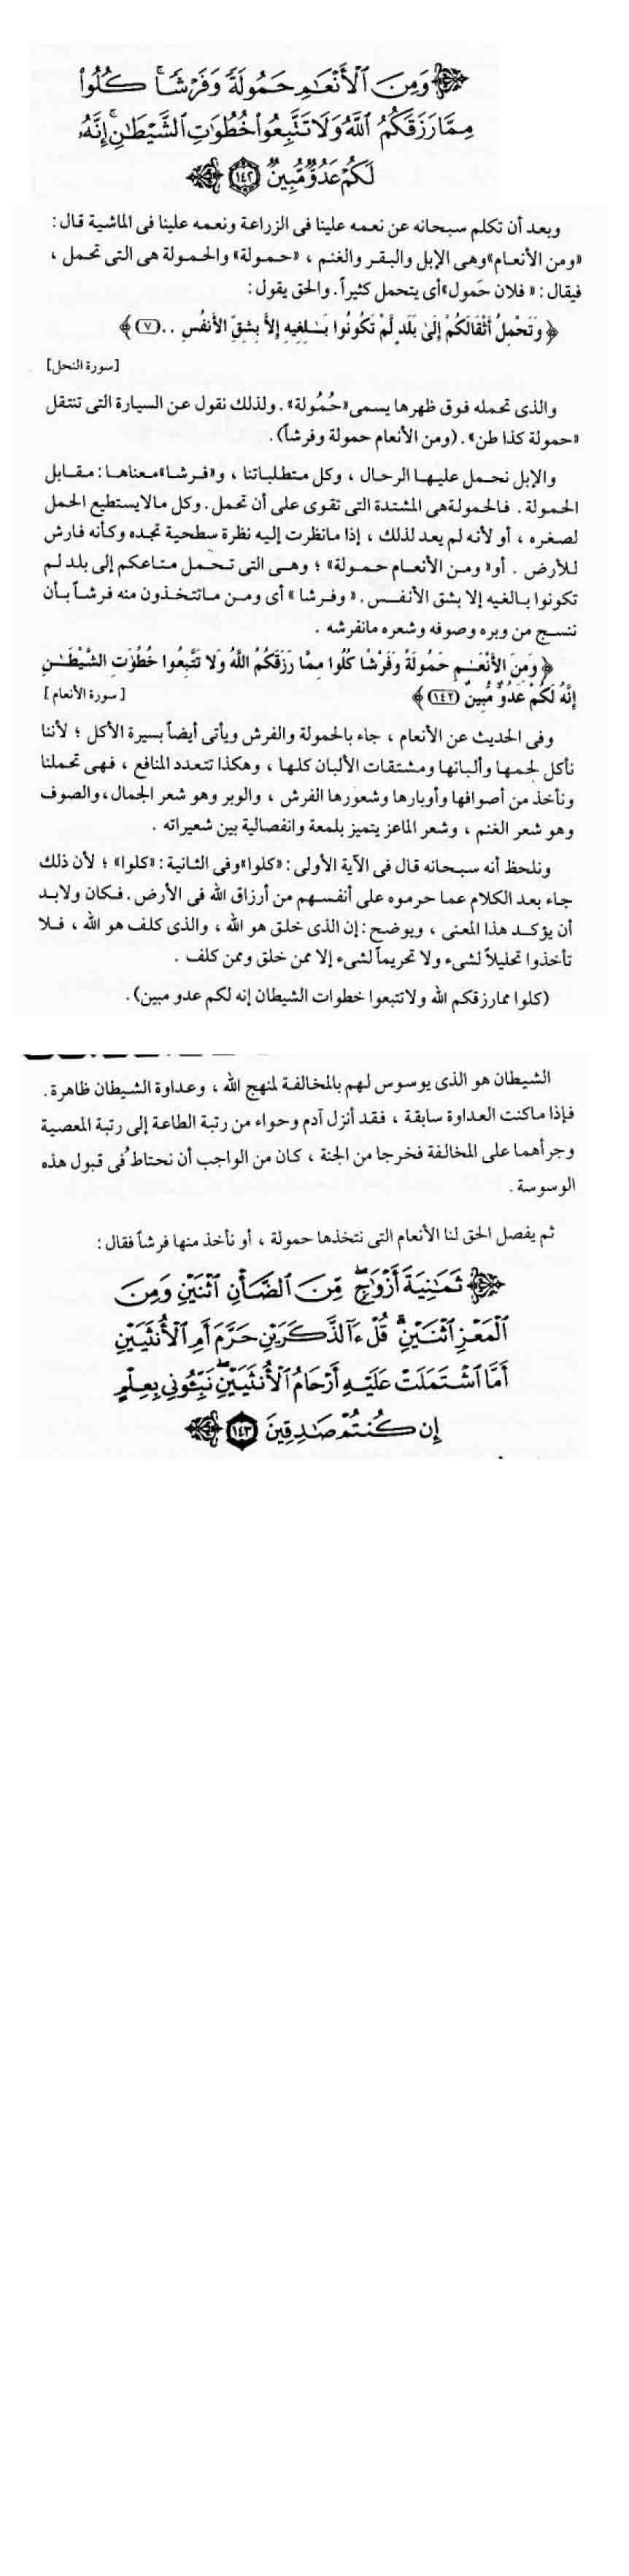 وَمِنَ ٱلْأَنْعَـٰمِ حَمُولَةً وَفَرْشًا ۚ كُلُوا۟
مِمَّا رَزَقَكُمُ ٱللَّهُ وَلَا تَتَّبِعُوا۟ خُطُوَٰتِ ٱلشَّيْطَـٰنِ ۚ إِنَّهُۥ
لَكُمْ عَدُوٌّ مُّبِينٌ ١٤٢
وبعد أن تكلم سبحانه عن نعمه علينا فى الزراعة ونعمه علينا فى الماشية قال :
«ومن الأنعام» وهى الإبل والبقر والغنم ، «حمولة» والحمولة هى التى تحمل ،
فيقال : « فلان حَمول» أى يتحمل كثيراً . والحق يقول :
﴿ وَتَحْمِلُ أَثْقَالَكُمْ إِلَىٰ بَلَدٍ لَّمْ تَكُونُوا بَـٰلِغِيهِ إِلاَّ بِشِقِّ الأَنفُسِ .. (٧) ﴾
[سورة النحل]
والذى تحمله فوق ظهرها يسمى «حُمُولة» . ولذلك نقول عن السيارة التى تنتقل
«حمولة كذا طن» . (ومن الأنعام حمولة وفرشاً) .
والإبل نحمل عليها الرحال ، وكل متطلباتنا ، و«فرشا» معناها : مقابل
الحمولة . فالحمولة هى المشتدة التى تقوى على أن تحمل . وكل مالا يستطيع الحمل
لصغره ، أو لأنه لم يعد لذلك ، إذا مانظرت إليه نظرة سطحية تجده وكأنه فارش
للأرض . أو « ومن الأنعام حمولة» ؛ وهى التى تحمل متاعكم إلى بلد لم
تكونوا بالغيه إلا بشق الأنفس . « وفرشا » أى ومن ماتتخذون منه فرشاً بأن
ننسج من وبره وصوفه وشعره مانفرشه .
﴿ وَمِنَ الأَنْعَـٰمِ حَمُولَةً وَفَرْشًا كُلُوا مِمَّا رَزَقَكُمُ اللَّهُ وَلا تَتَّبِعُوا خُطُوَٰتِ الشَّيْطَـٰنِ
إِنَّهُ لَكُمْ عَدُوٌّ مُّبِينٌ (١٤٢) ﴾ [ سورة الأنعام ]
وفى الحديث عن الأنعام ، جاء بالحمولة والفرش ويأتى أيضاً بسيرة الأكل ؛ لأننا
نأكل لحمها وألبانها ومشتقات الألبان كلها ، وهكذا تتعدد المنافع ، فهى تحملنا
ونأخذ من أصوافها وأوبارها وشعورها الفرش ، والوبر وهو شعر الجمال ، والصوف
وهو شعر الغنم ، وشعر الماعز يتميز بلمعة وانفصالية بين شعيراته .
ونلحظ أنه سبحانه قال فى الآية الأولى : «كلوا» وفى الثانية : «كلوا» ؛ لأن ذلك
جاء بعد الكلام عما حرموه على أنفسهم من أرزاق الله فى الأرض . فكان ولابد
أن يؤكد هذا المعنى ، ويوضح : إن الذى خلق هو الله ، والذى كلف هو الله ، فلا
تأخذوا تحليلاً لشىء ولا تحريماً لشىء إلا ممن خلق وممن كلف .
(كلوا مما رزقكم الله ولاتتبعوا خطوات الشيطان إنه لكم عدو مبين) .
الشيطان هو الذى يوسوس لهم بالمخالفة لمنهج الله ، وعداوة الشيطان ظاهرة .
فإذا ماكنت العداوة سابقة ، فقد أنزل آدم وحواء من رتبة الطاعة إلى رتبة المعصية
وجرأهما على المخالفة فخرجا من الجنة ، كان من الواجب أن نحتاط فى قبول هذه
الوسوسة .
ثم يفصل الحق لنا الأنعام التى نتخذها حمولة ، أو نأخذ منها فرشاً فقال :
ثَمَـٰنِيَةَ أَزْوَٰجٍ ۖ مِّنَ ٱلضَّأْنِ ٱثْنَيْنِ وَمِنَ
ٱلْمَعْزِ ٱثْنَيْنِ ۗ قُلْ ءَآلذَّكَرَيْنِ حَرَّمَ أَمِ ٱلْأُنثَيَيْنِ
أَمَّا ٱشْتَمَلَتْ عَلَيْهِ أَرْحَامُ ٱلْأُنثَيَيْنِ ۖ نَبِّـُٔونِى بِعِلْمٍ
إِن كُنتُمْ صَـٰدِقِينَ ١٤٣